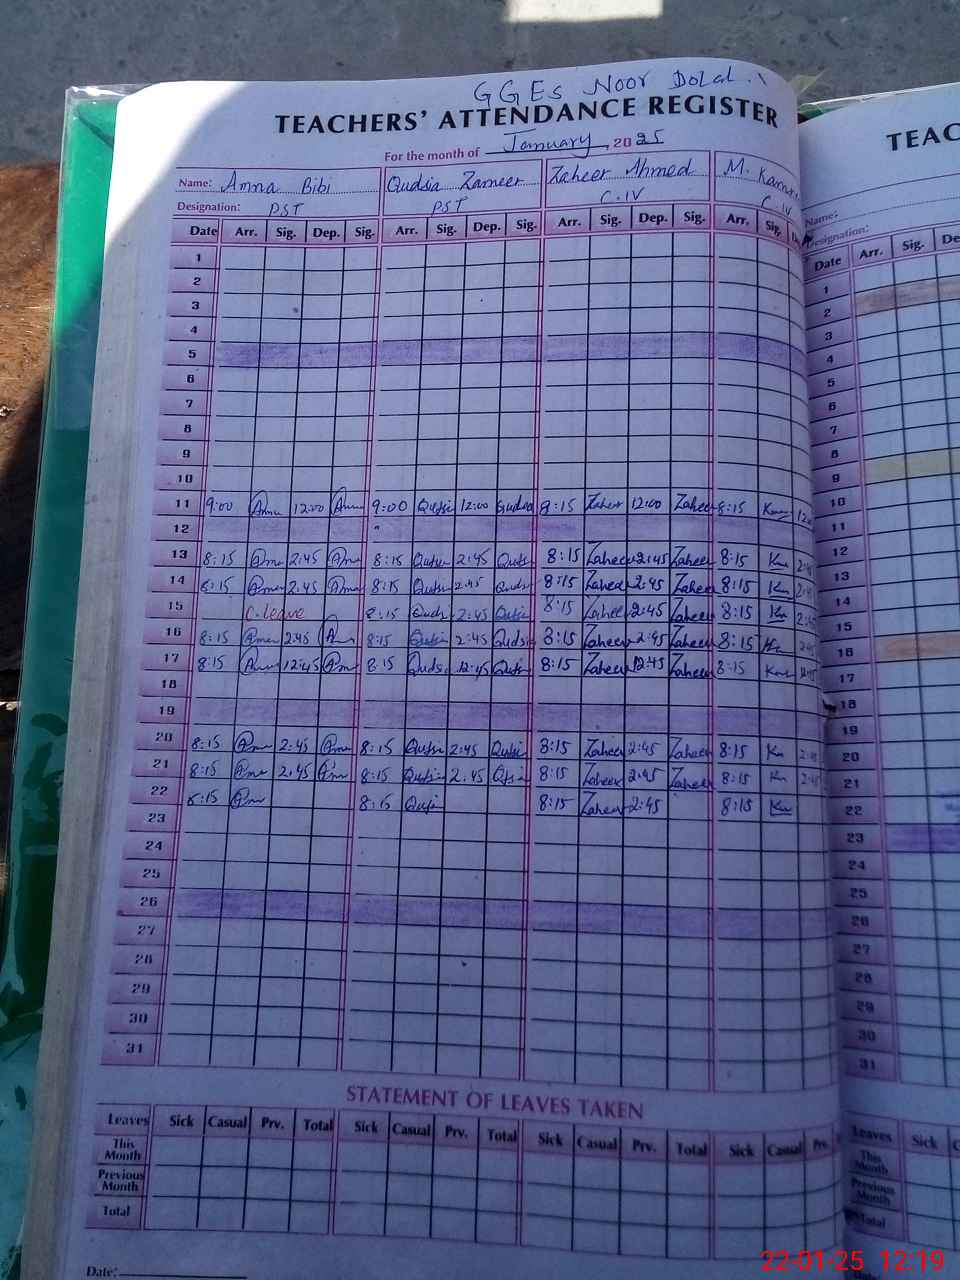 GGES Noor Dolal.
TEACHERS' ATTENDANCE REGISTER
TEAC
For the month of January, 2025
Name: Amna Bibi Qudsia Zameer Zaheer Ahmed M.
Designation: PST PST C.IV C.IV
Date Arr. Sig. Dep. Sig. Arr. Sig. Dep. Sig. Arr. Sig. Dep. Sig. Arr. Sig.
1
2
3
4
5
6
7
8
9
10
11 9:00 Amna 12:00 Amna 9:00 Qudsia 12:00 Qudsia 8:15 Zaheer 12:00 Zaheer 8:15
12
13 8:15 2:45 8:15 2:45 8:15 Zaheer 2:45 Zaheer 8:15
14 8:15 2:45 8:15 2:45 8:15 Zaheer 2:45 Zaheer 8:15
15 C.leave 8:15 2:45 8:15 Zaheer 2:45 Zaheer 8:15
16 8:15 2:45 8:15 2:45 8:15 Zaheer 2:45 Zaheer 8:15
17 8:15 12:45 8:15 12:45 8:15 Zaheer 12:45 Zaheer 8:15
18
19
20 8:15 2:45 8:15 2:45 8:15 Zaheer 2:45 Zaheer 8:15
21 8:15 2:45 8:15 2:45 8:15 Zaheer 2:45 Zaheer 8:15
22 8:15 8:15 8:15 Zaheer 2:45 8:15
23
24
25
26
27
28
29
30
31
STATEMENT OF LEAVES TAKEN
Leaves Sick Casual Prv. Total Sick Casual Prv. Total Sick Casual Prv. Total Sick Casual Prv.
This Month
Previous Month
Total
Date:
Name:
Designation:
Date Arr. Sig. De
1
2
3
4
5
6
7
8
9
10
11
12
13
14
15
16
17
18
19
20
21
22
23
24
25
26
27
28
29
30
31
Leaves Sick C
This Month
Previous Month
Total
22-01-25 12:19